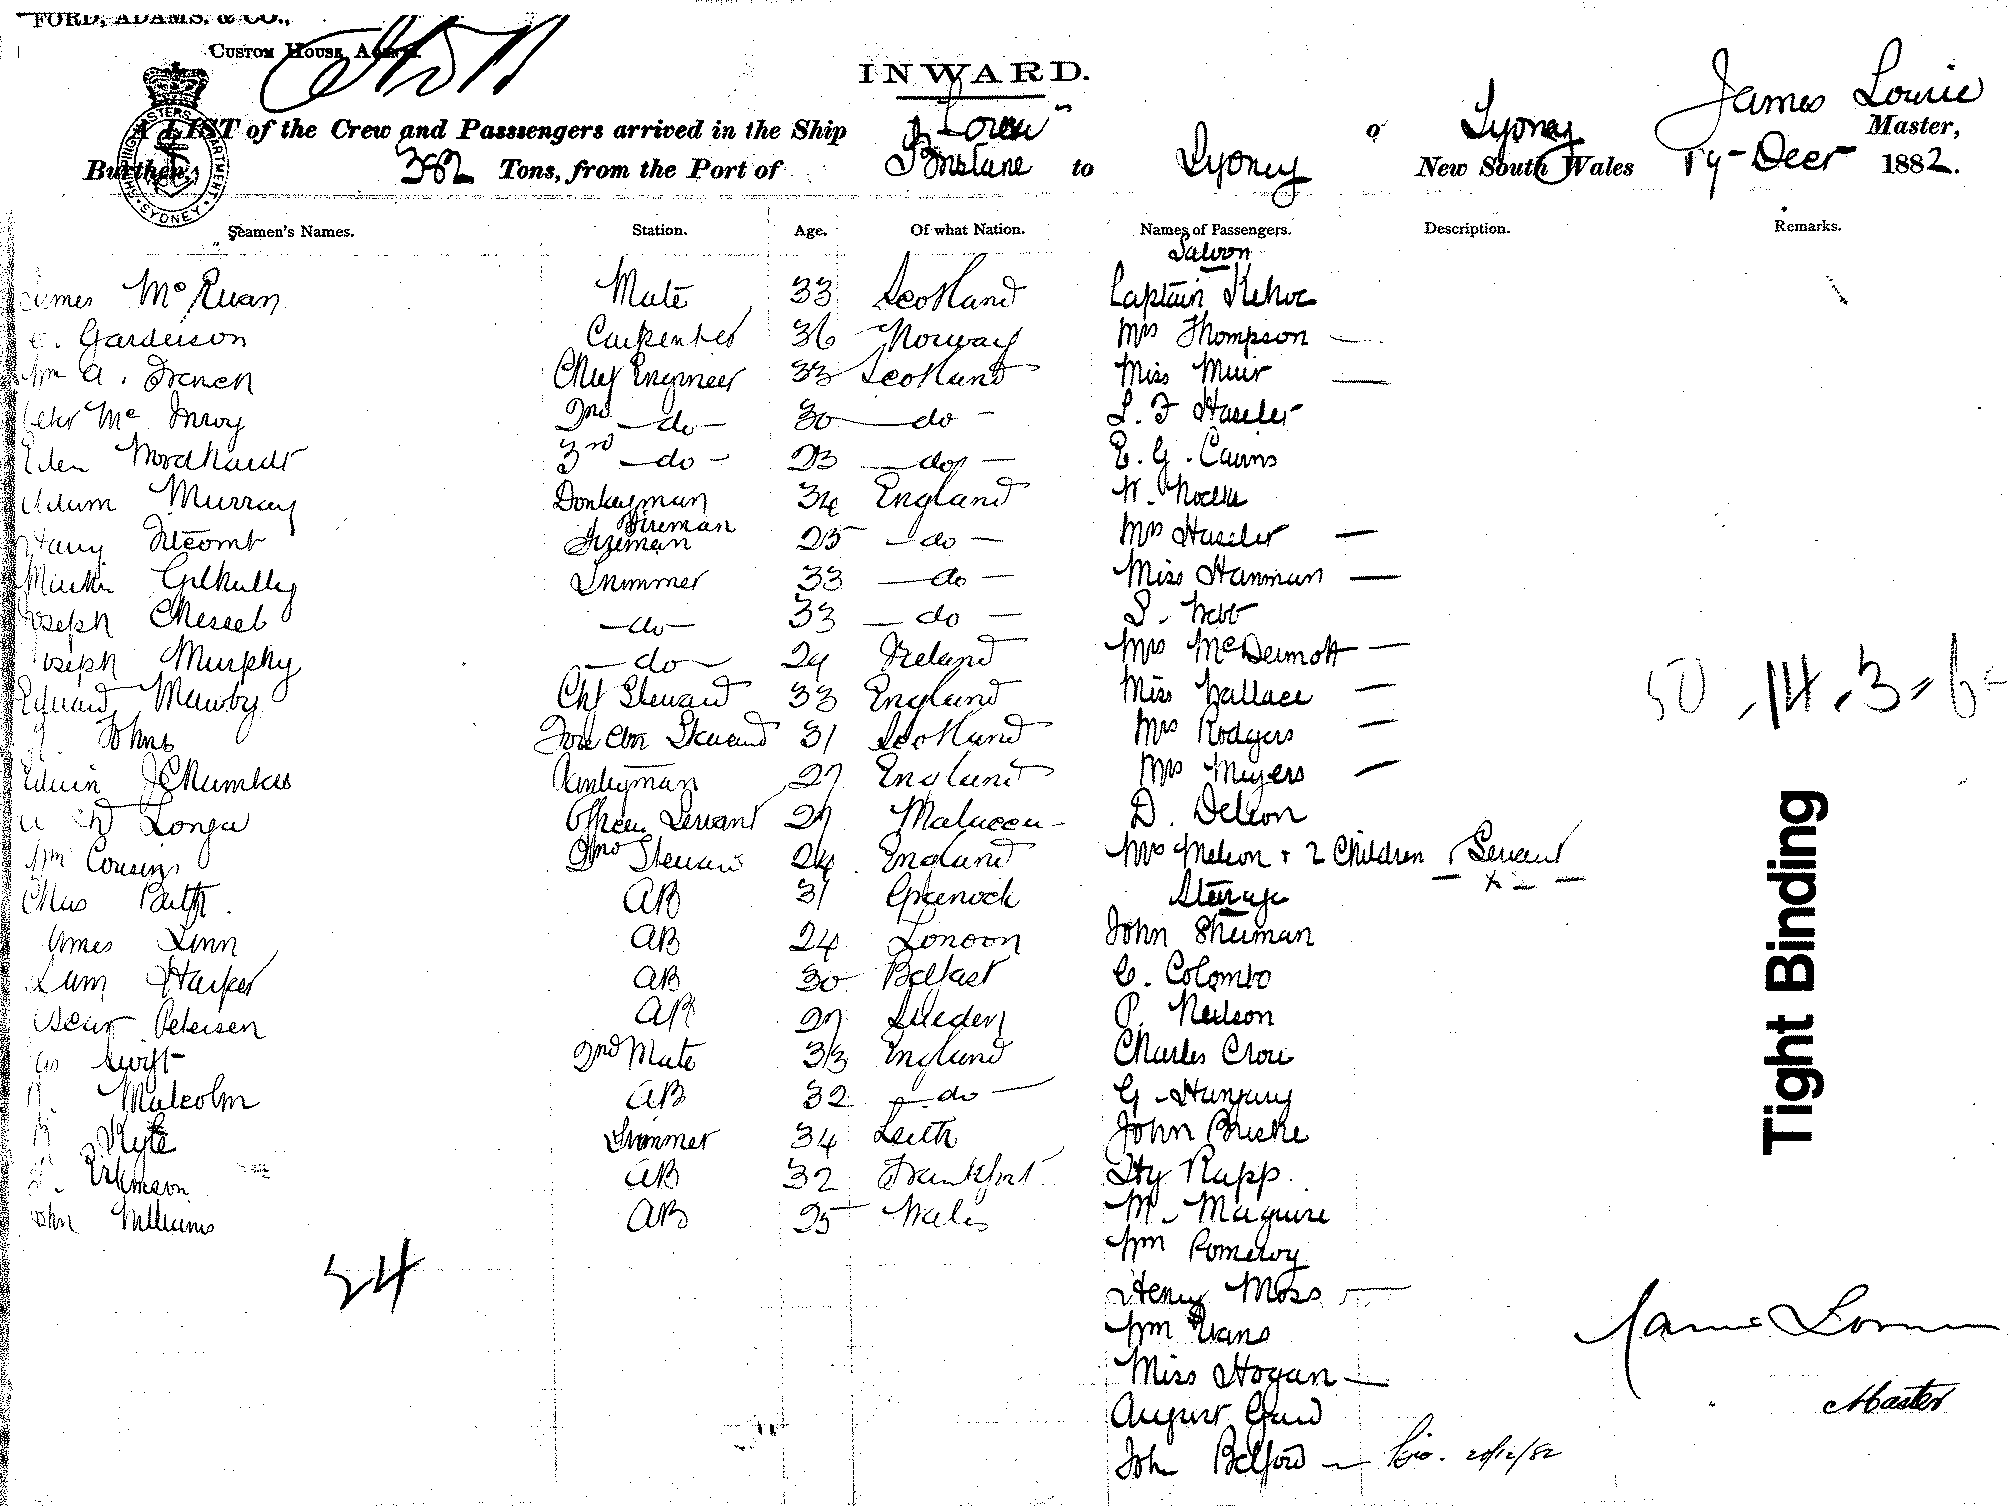 FORD, ADAMS, & CO.,
CUSTOM HOUSE AGENTS.
INWARD.
A LIST of the Crew and Passsengers arrived in the Ship of Sydney James Lowrie Master,
Burthen, 382 Tons, from the Port of Brisbane to Sydney New South Wales 19 Decr 1882.
SYDNEY
Seamen's Names. Station. Age. Of what Nation. Names of Passengers. Description. Remarks.
Saloon
James McRuan Mate 33 Scotland Captain Kehoe
Garderson Carpenter 36 Norway Mrs Thompson —
Wm A. French Chief Engineer 33 Scotland Miss Muir —
Peter Mc Inroy 2nd — do — 30 — do — L. F Haseler
Eden Mordhardt 3rd — do — 23 — do — E. G. Cairns
Adam Murray Donkeyman 34 England W.
Harry Titcomb Fireman Fireman 25 — do — Mrs Haseler —
Martin Gilhully Trimmer 33 — do — Miss Hanman —
Joseph Chessel — do — 33 — do — S. Webb
Joseph Murphy — do — 24 Ireland Mrs McDermott —
Edward Mawby Chf Steward 33 England Miss Wallace —
Johns Fore Cbn Steward 31 Scotland Mrs Rodgers —
Edwin Pantryman 27 England Mrs Meyers —
Longa Officers Servant 29 Malacca D. Deleon
Wm Cousins 2nd Steward 24 England Mrs Melson + 2 Children + Servant
Chas Bath AB 31 Greenock Steerage
James Linn AB 24 London John Sherman
Sam Harper AB 30 Belfast C. Colombo
Oscar Petersen AB 27 Sweden P. Neilson
Geo Swift 2nd Mate 33 England Charles Crow
Malcolm AB 32 — do — G. Hungary
R Kyle Trimmer 34 Leith John Burke
Erkmann AB 32 Frankfort Hy Rapp
John Williams AB 25 Wales M. Maguire
24 Wm Pomeroy
Henry Moss
Wm Evans
Miss Hogan —
August
John Belford — 20/12/82
50 . 14 . 3 = 6
Tight Binding
James Lowrie
Master